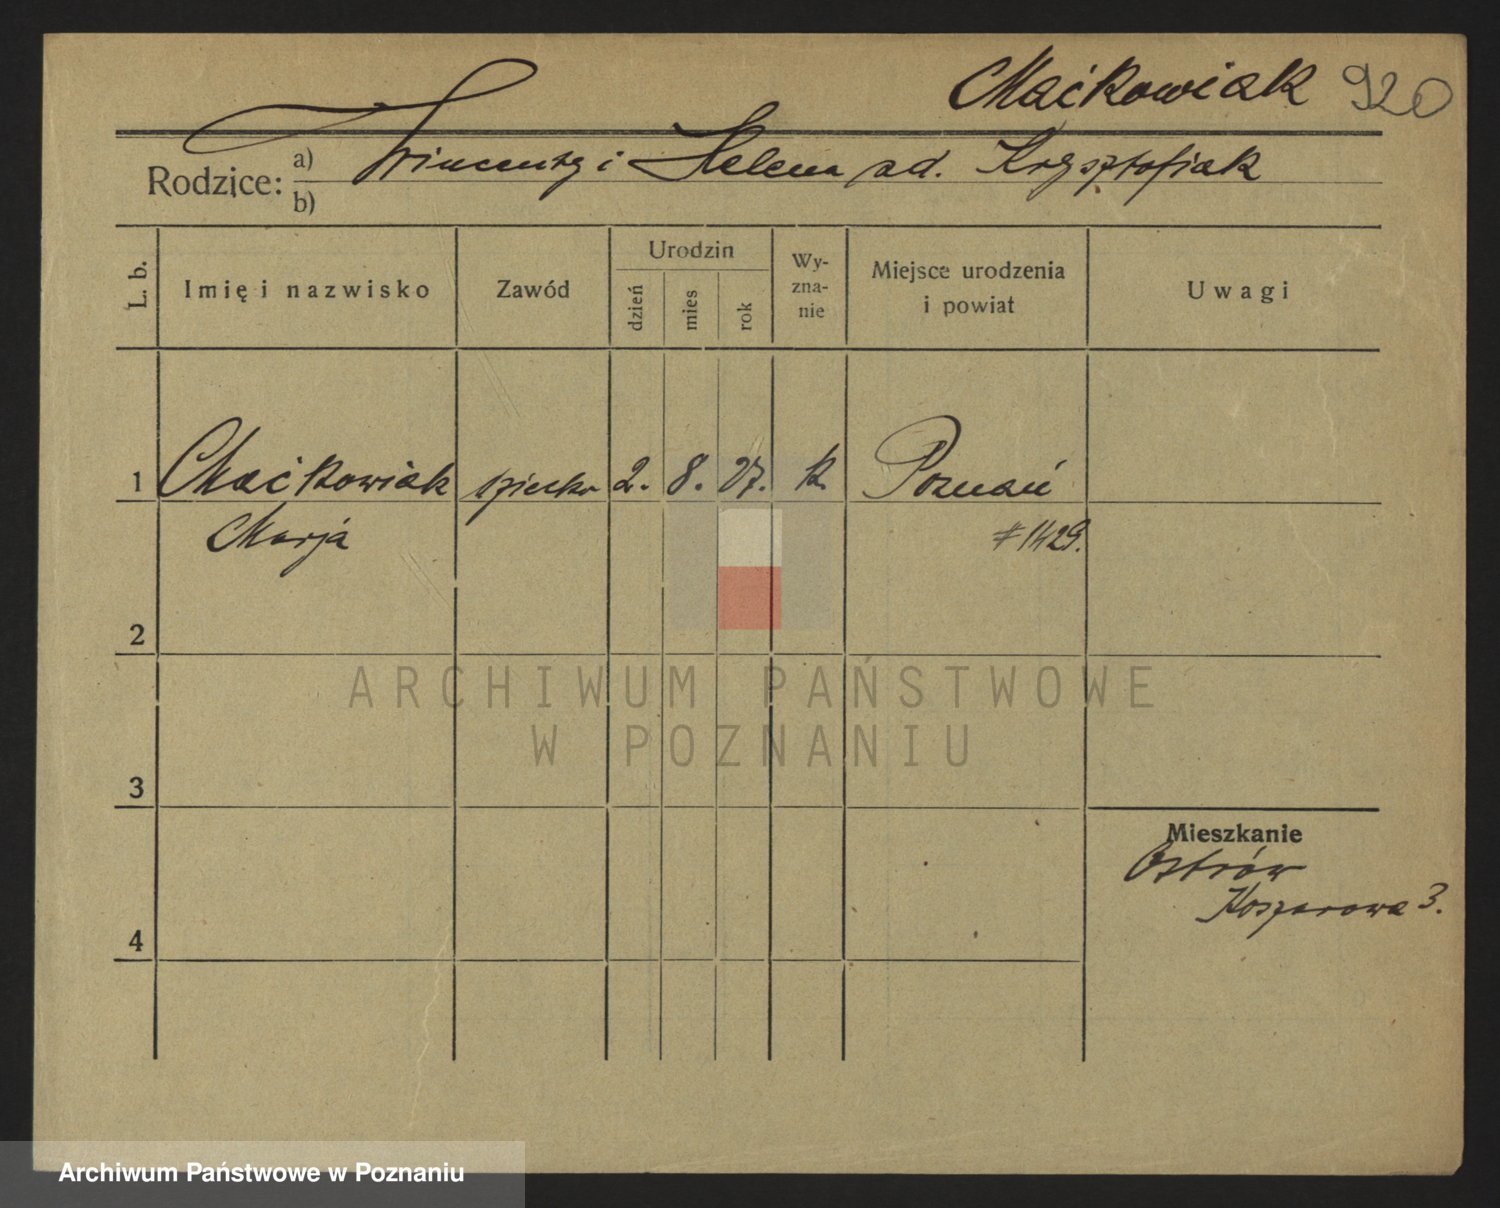 Maćkowiak 920
Rodzice: a) Wincenty i Helena zd. Krysztofiak
b)
L. b. Imię i nazwisko Zawód Urodzin dzień mies rok Wy-zna-nie Miejsce urodzenia i powiat Uwagi
1 Maćkowiak dziecko 2. 8. 27. k. Poznań
Marja # 1429.
2
ARCHIWUM PAŃSTWOWE
W POZNANIU
3
Mieszkanie
Ostrów
Koszarowa 3.
4
Archiwum Państwowe w Poznaniu